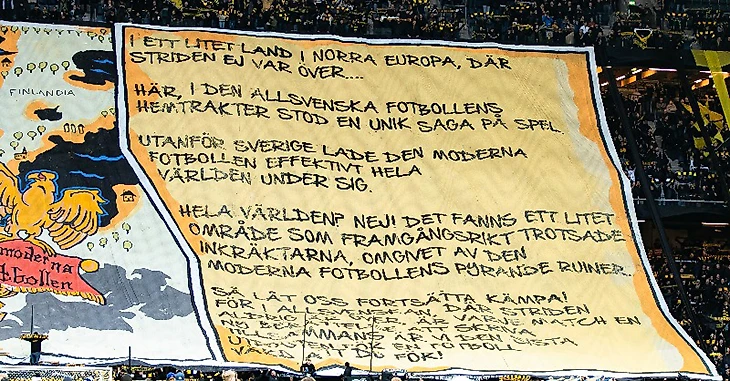 I ETT LITET LAND I NORRA EUROPA, DÄR
STRIDEN EJ VAR ÖVER....
HÄR, I DEN ALLSVENSKA FOTBOLLENS
HEMTRAKTER STOD EN UNIK SAGA PÅ SPEL.
UTANFÖR SVERIGE LADE DEN MODERNA
FOTBOLLEN EFFEKTIVT HELA
VÄRLDEN UNDER SIG.
HELA VÄRLDEN? NEJ! DET FANNS ETT LITET
OMRÅDE SOM FRAMGÅNGSRIKT TROTSADE
INKRÄKTARNA, OMGIVET AV DEN
MODERNA FOTBOLLENS PYRANDE RUINER.
SÅ LÅT OSS FORTSÄTTA KÄMPA!
FÖR I ALLSVENSKAN, DÄR STRIDEN
ALDRIG ÄR ÖVER, ÄR VARJE MATCH EN
NY BERÄTTELSE ATT SKRIVA
ÄR VI DEN SISTA
FINLANDIA
moderna